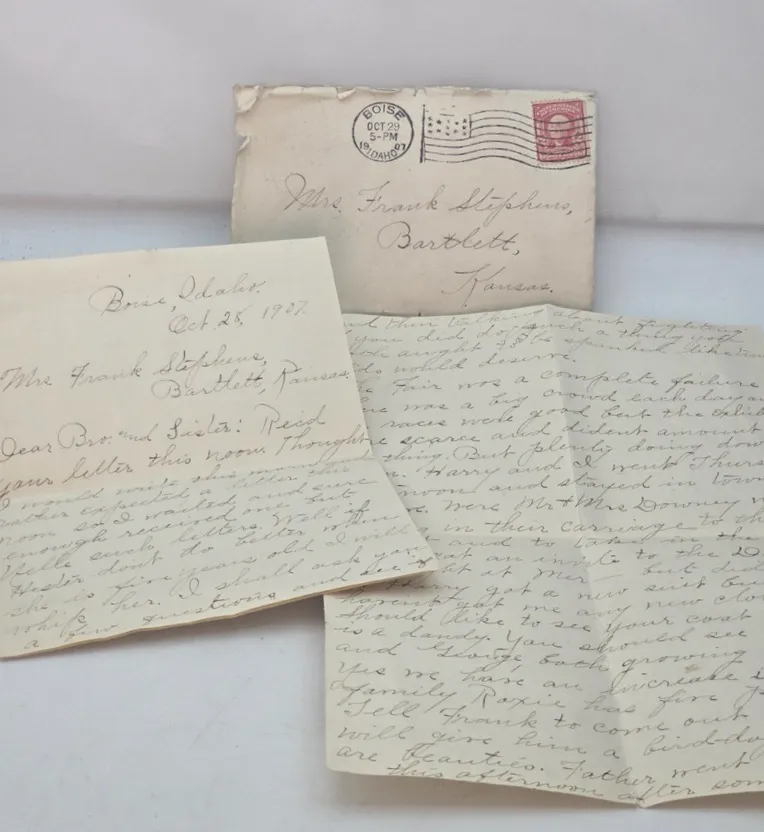 BOISE
OCT 29
5-PM
1907
IDAHO
Mrs. Frank Stephens,
Bartlett,
Kansas.
Boise, Idaho.
Oct. 28, 1907.
Mrs Frank Stephens,
Bartlett, Kansas.
Dear Bro. and Sister: Recd
your letter this noon. Thought
I would write this morning
rather expected a letter this
noon so I waited and sure
enough received one but
such letters. Well if
Hester dont do better when
she is five years old I will
whip her. I shall ask you
a few questions and see
then talking about
you did do such a thing you
aught to be spanked like
would deserve.
Fair was a complete failure
was a big crowd each day
races were good but the
scarce and dident amount
thing. But plenty doing down
Harry and I went Thurs
noon and stayed in town
were Mr & Mrs Downey
in their carriage to th
and to take in the
an invite to the
at but did
Harry got a new suit but
havent got me any new clo
Should like to see your coat
is a dandy. You should see
and George both growing
Yes we have an increase
family Roxie has five
Tell Frank to come out
will give him a bird-do
are beauties. Father went
this afternoon after som